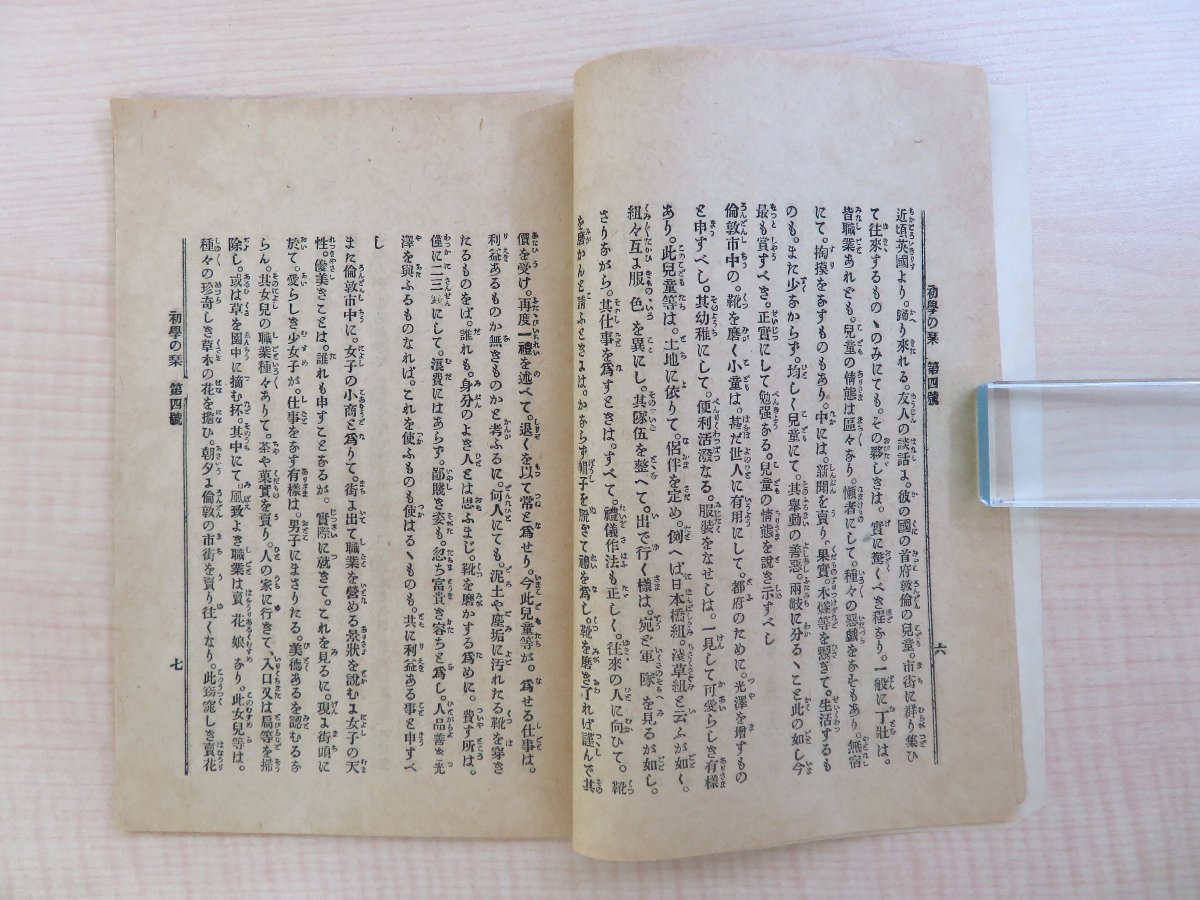 初學の栞 第四號
六
近頃英國より。歸り來れる。友人の談話よ。彼の國の首府敦倫の兒童。市街に群り集ひ
て往來するものヽのみにても。その夥しきは。實に驚くべき程なり。一般に丁壯は。
皆職業あれども。兒童の情態は區々なり。懶者にして。種々の惡戯をなすもあり。無宿
にて。掏摸をなすものもあり。中には。新聞を賣り。果實。木燧等を鬻ぎて。生活するも
のも。また少なからず。均しく兒童にて。其擧動の善惡。兩岐に分るヽこと此の如し今
最も賞すべき。正實にして勉强なる。兒童の情態を說き示すべし
倫敦市中の。靴を磨く小童は。甚だ世人に有用にして。都府のために。光澤を增すもの
と申すべし。其幼稚にして。便利活潑なる。服裝をなせしは。一見して可愛らしき有樣
あり。此兒童等は。土地に依りて。侶伴を定め。例へば日本橋組。淺草組と云ふが如く。
組々互よ服色を異にし。其隊伍を整へて。出で行く樣は。宛ど軍隊を見るが如し。
さりながら。其仕事を爲すときは。すべて。禮儀作法も正しく。往來の人に向ひて。靴
を磨かんと請ふときよは。かならず帽子を脫ぎて禮を爲し。靴を磨き了れば謹んで其
價を受け。再度一禮を述べて。退くを以て常と爲せり。今此兒童等が。爲せる仕事は。
利益あるものか無きものかと考ふるに。何人にても。泥土や塵垢に汚れたる靴を穿き
たるものをば。誰れも。身分のよき人とは思ふまじ。靴を磨かする爲めに。費す所は。
僅に二三錢にして。浪費にはあらず。鄙賤き姿も。忽ち富貴き容ちと爲し。人品善き光
澤を與ふるものなれば。これを使ふものも使はるヽものも。共に利益ある事と申すべ
し
また倫敦市中に。女子の小商と爲りて。街よ出て職業を營める景狀を說むよ女子の天
性。優美きことは。誰れも申すことなるが。實際に就きて。これを見るに。現よ街頭に
於て。愛らしき少女子が。仕事をなす有樣は。男子にまさりたる。美德あるを認むるな
らん。其女兒の職業種々ありて。茶や菓實を賣り。人の家に行きて、入口又は局等を掃
除し。或は草を園中に摘む抔。其中にて。風致よき職業は賣花娘なり。此女兒等は。
種々の珍奇しき草木の花を擔ひ。朝夕よ倫敦の市街を賣り往くなり。此窈窕しき賣花
初學の栞 第四號
七